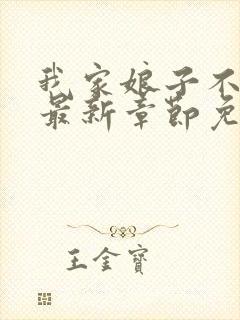 我家娘子不
最新章节免
王金宝